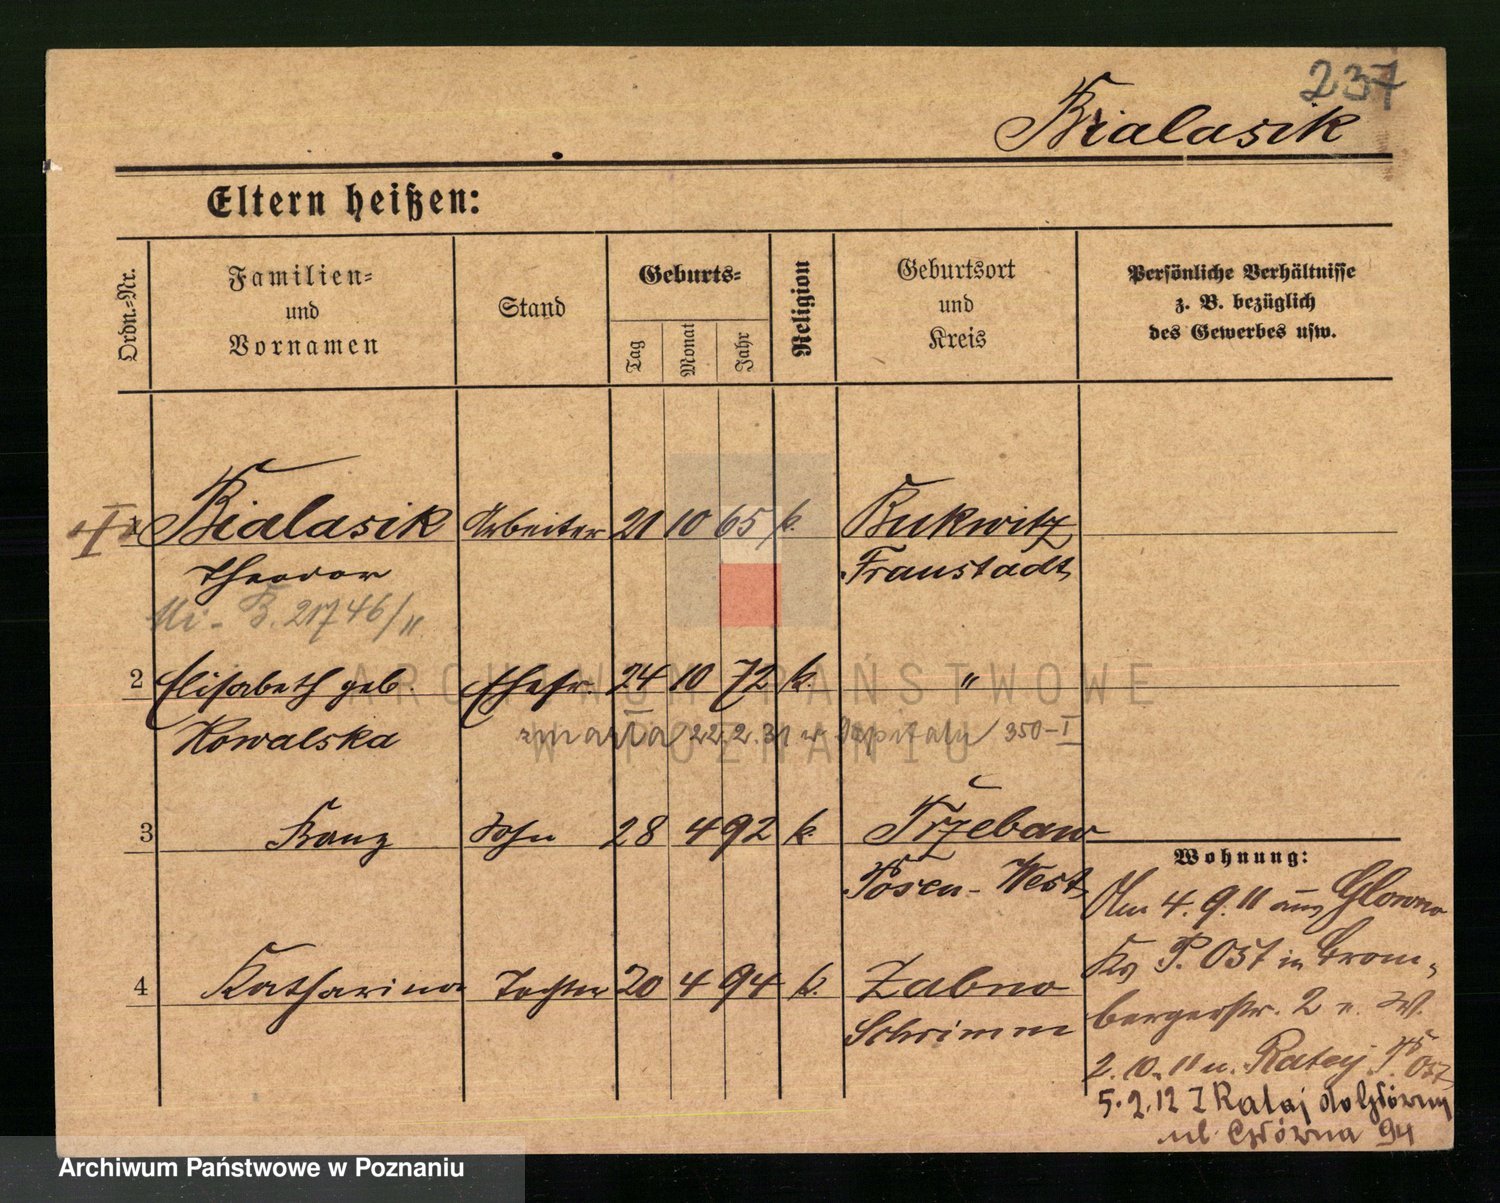 237
Bialasik
Eltern heißen:
Ordn.-Nr.
Familien-
und
Vornamen
Stand
Geburts-
Tag
Monat
Jahr
Religion
Geburtsort
und
Kreis
Persönliche Verhältnisse
z. B. bezüglich
des Gewerbes usw.
1 Bialasik Arbeiter 21 10 65 k. Bukwitz
Theodor Fraustadt
B. 21746/11
2 Elisabeth geb. Ehefr. 24 10 72 k. "
Kowalska
zmarła 22.2.31 w Szpitalu 350-I
3 Franz Sohn 28 4 92 k. Trzebaw
Posen-West
4 Katharina Tochter 20 4 94 k. Zabno
Schrimm
Wohnung:
Am 4.9.11 aus Glowno
Krs P. Ost in Brom-
bergerstr. 2 n. W.
2.10.11 n. Rataj P. Ost
5.2.12 Z Rataj do Główny
ul. Główna 94
ARCHIWUM PAŃSTWOWE
W POZNANIU
Archiwum Państwowe w Poznaniu